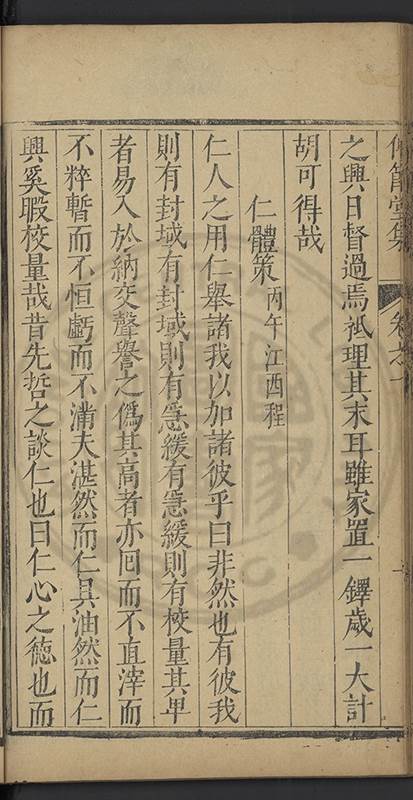 仰節堂集　卷之一
之興日督過焉祇理其末耳雖家置一鐸歲一大計
胡可得哉
仁體策丙午江西程
仁人之用仁舉諸我以加諸彼乎曰非然也有彼我
則有封域有封域則有急緩有急緩則有校量其卑
者易入於納交聲譽之僞其高者亦囘而不直滓而
不粹暫而不恒虧而不滿夫湛然而仁具油然而仁
興奚暇校量哉昔先哲之談仁也曰仁心之德也而